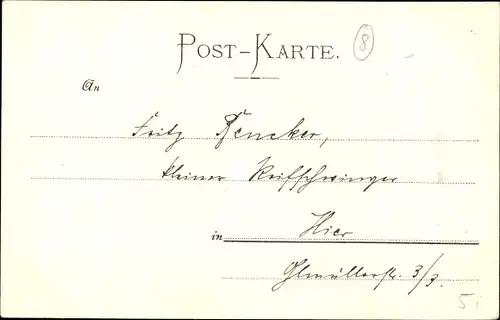 POST-KARTE.
8
An
Fritz Rencker,
kleiner Reifschwinger
in Hier
Ohlmüllerstr. 3/3.
5